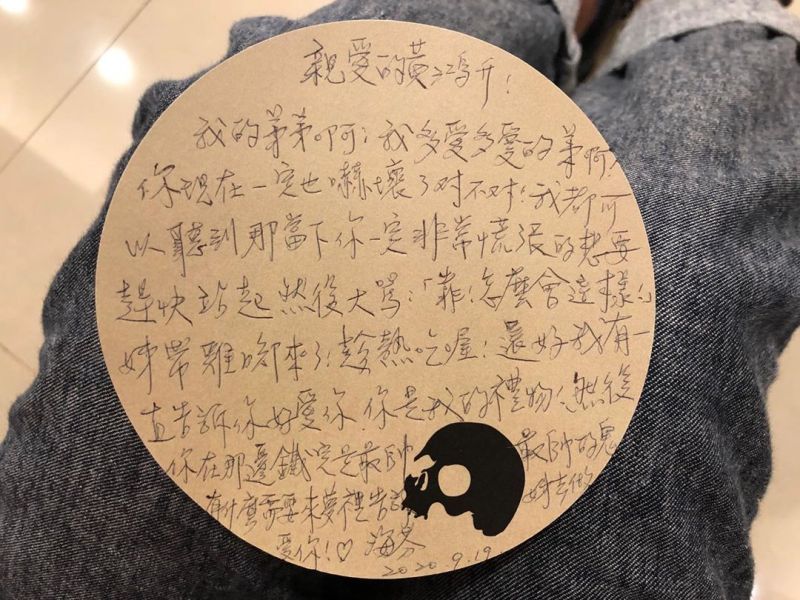 親愛的黃鴻升！
我的弟弟啊！我多愛多愛的弟啊！
你現在一定也嚇壞了对不对！我都可
以聽到那當下你一定非常慌張的想要
趕快站起然後大罵：「靠！怎麼會這樣」
姊帶雞腳來了！趁熱吃喔！還好我有一
直告訴你好愛你 你是我的禮物！然後
你在那邊鐵定是最帥 最帥的鬼
有什麼需要來夢裡告訴 姊去做
愛你！♡ 海芬
2020.9.19